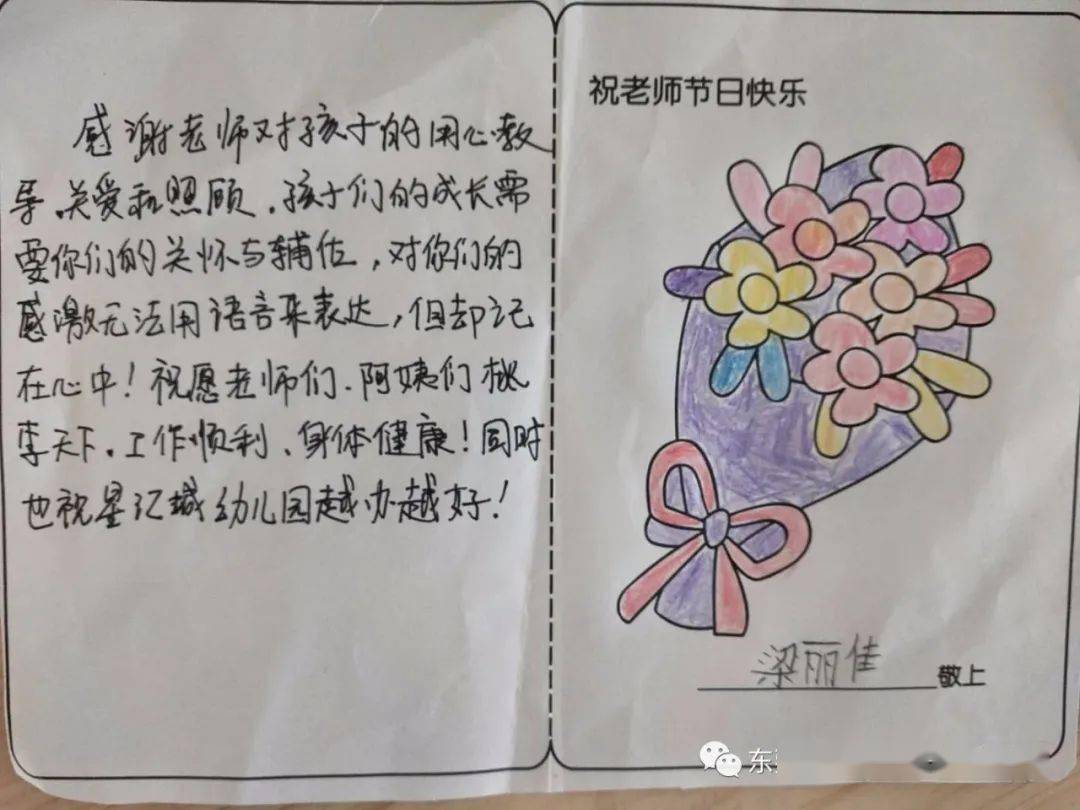 感谢老师对孩子的用心教
导、关爱和照顾,孩子们的成长需
要你们的关怀与辅佐,对你们的
感激无法用语言来表达,但却记
在心中!祝愿老师们、阿姨们桃
李天下,工作顺利、身体健康!同时
也祝星汇城幼儿园越办越好!
祝老师节日快乐
梁丽佳 敬上
东